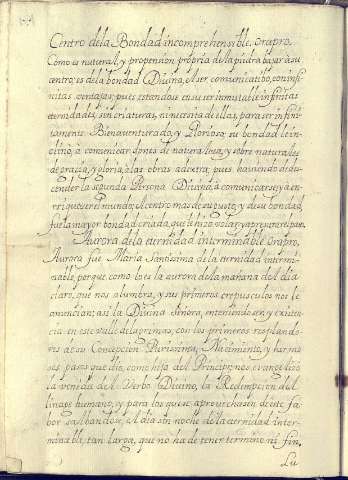 Centro dela Bondad incomprehensible. Ora pro.
Como es natural, y propension propria de la piedra bajar à su
centro; es dela bondad Divina, el ser comunicatibo, con infi-
nitas ventajas; pues estandose en su ser inmutable infinitas
eternidades, sin criaturas, ni necesita de ellas, para ser infini-
tamente Bienaventurado, y Glorioso; su bondad le in-
clinò, à comunicar dones de naturaleza, y sobre naturales
de gracia, y gloria, à las obras adextra; pues haviendo de des-
cender la segunda Persona Divina, à comunicarse, y à en-
rriquezer el mundo; el centro mas de su gusto, y de su bondad,
fue la mayor bondad criada, que le hizo
Aurora dela eternidad interminable. Ora pro.
Aurora fue Maria Santissima de la eternidad intermi-
nable, porque como lo es la aurora de la mañana del dia
claro, que nos alumbra, y sus primeros crepusculos nos le
anuncian; asi la Divina Señora, interviendo en y existen-
cia en este valle de lagrimas, con los primeros resplando-
res de su Concepcion Purissima, Nacimiento, y hermo-
ses pasos que dio, como hija del Principe; nos evangelizò
la venida del Verbo Divino, la Redempcion del
linage humano, y para los que se aprovechasen de este fa-
bor salbandose, el dia sin noche de la eternidad inter-
minable, tan larga, que no ha de tener termino ni fin.
Lu